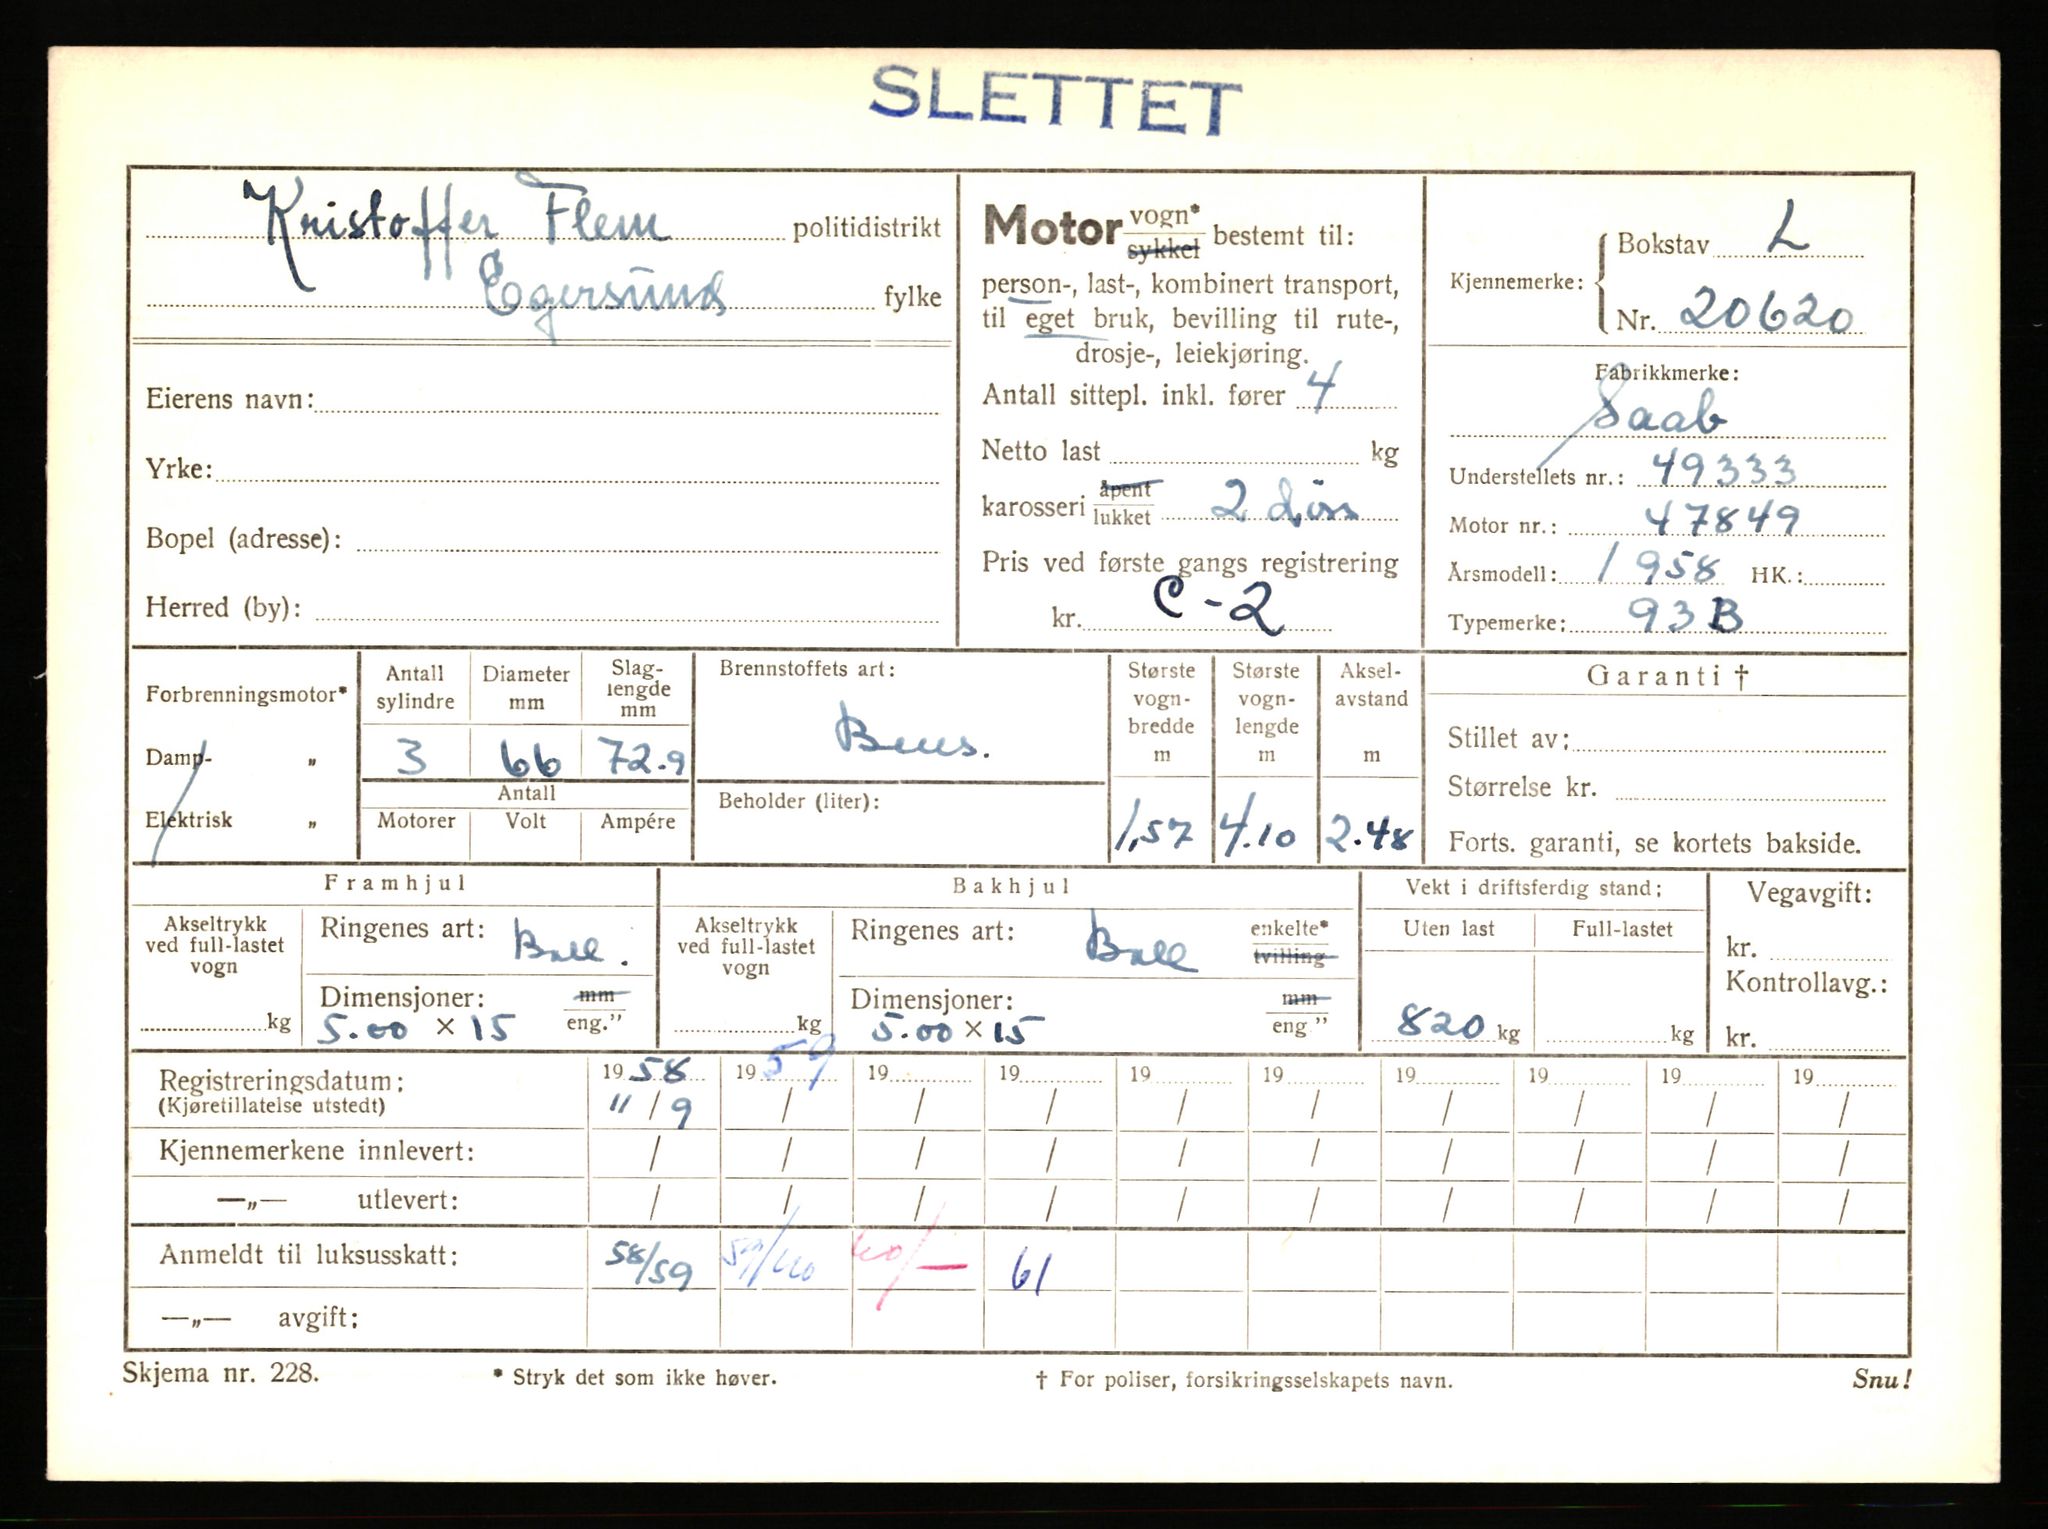 SLETTET
Kristoffer Flem politidistrikt
Egersund fylke
Eierens navn:
Yrke:
Bopel (adresse):
Herred (by):
Motor vogn* sykkel bestemt til:
person-, last-, kombinert transport,
til eget bruk, bevilling til rute-,
drosje-, leiekjøring.
Antall sittepl. inkl. fører 4
Netto last kg
karosseri åpent lukket 2 dörs
Pris ved første gangs registrering
kr. C-2
Kjennemerke: Bokstav L
Nr. 20620
Fabrikkmerke:
Saab
Understellets nr.: 49333
Motor nr.: 47849
Årsmodell: 1958 HK.:
Typemerke: 93B
Forbrenningsmotor*
Damp- „
Elektrisk „
Antall sylindre
3
Diameter mm
66
Slag-lengde mm
72.9
Antall
Motorer Volt Ampére
Brennstoffets art:
Bens.
Beholder (liter):
Største vogn-bredde m
1,57
Største vogn-lengde m
4.10
Aksel-avstand m
2.48
Garanti †
Stillet av:
Størrelse kr.
Forts. garanti, se kortets bakside.
Framhjul
Akseltrykk ved full-lastet vogn
kg
Ringenes art: Ball.
Dimensjoner: mm eng."
5.00 × 15
Bakhjul
Akseltrykk ved full-lastet vogn
kg
Ringenes art: Ball enkelte* tvilling
Dimensjoner: mm eng"
5.00 × 15
Vekt i driftsferdig stand:
Uten last Full-lastet
820 kg kg
Vegavgift:
kr.
Kontrollavg.:
kr.
Registreringsdatum: 1958 1959 19 19 19 19 19 19 19 19
(Kjøretillatelse utstedt) 11/9 / / / / / / / / /
Kjennemerkene innlevert: / / / / / / / / / /
—„— utlevert: / / / / / / / / / /
Anmeldt til luksusskatt: 58/59 59/60 60/— 61
—„— avgift:
Skjema nr. 228. * Stryk det som ikke høver. † For poliser, forsikringsselskapets navn. Snu!